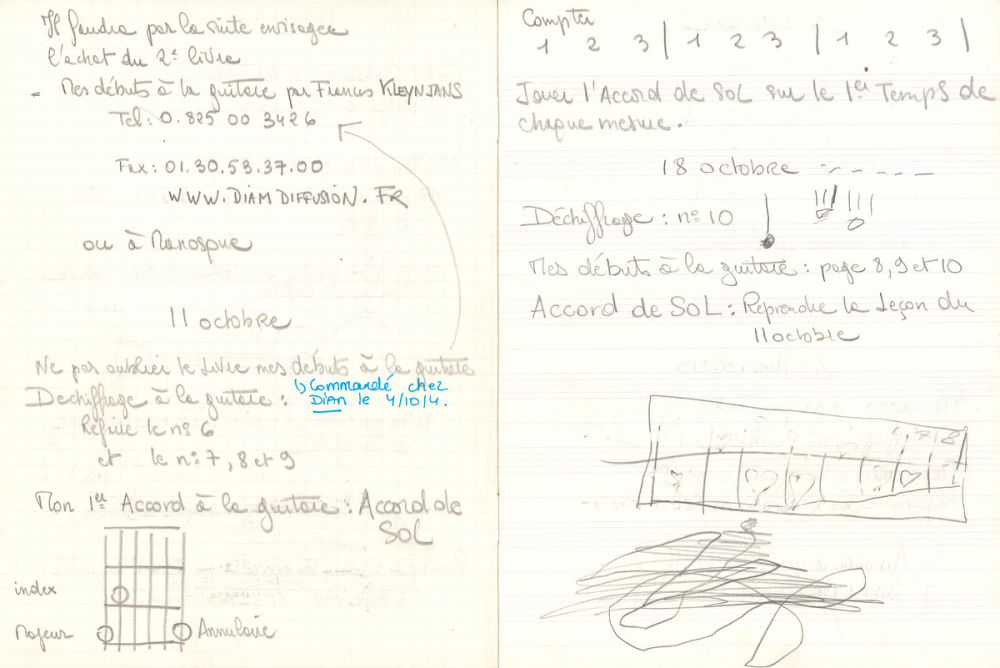 Il faudra par la suite envisager
l'achat du 2e livre
- Mes débuts à la guitare par Francis KLEYNJANS
Tel: 0.825 00 3426
Fax: 01.30.53.37.00
WWW.DIAMDIFFUSION.FR
ou à Manosque
11 octobre
Ne pas oublier le livre mes débuts à la guitare
↳ Commandé chez
DIAM le 4/10/4.
Dechiffrage à la guitare :
Refaire le n° 6
et le n° 7, 8 et 9
Mon 1er Accord à la guitare : Accord de
SOL
index
Majeur
Annulaire
Compter
1 2 3 | 1 2 3 | 1 2 3 |
Jouer l'Accord de SOL sur le 1er Temps de
chaque mesure.
18 octobre
Déchiffrage : n° 10
Mes débuts à la guitare : page 8, 9 et 10
Accord de SOL : Reprendre la Leçon du
11 octobre